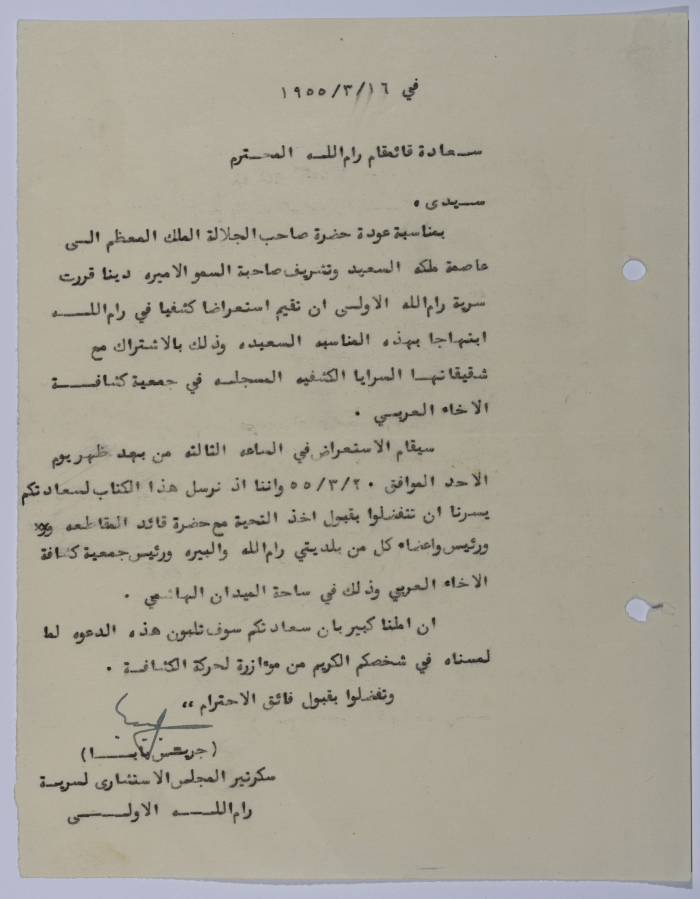 في ١٦/٣/١٩٥٥
سعادة قائمقام رام الله المحترم
سيدى ،
بمناسبة عودة حضرة صاحب الجلالة الملك المعظم الى
عاصمة ملكه السعيد وتشريف صاحبة السمو الاميره دينا قررت
سرية رام الله الاولى ان نقيم استعراضا كشفيا في رام الله
ابتهاجا بهذه المناسبه السعيده وذلك بالاشتراك مع
شقيقاتها السرايا الكشفيه المسجله في جمعية كشافة
الاخاء العربي .
سيقام الاستعراض في الساعه الثالثه من بعد ظهر يوم
الاحد الموافق ٢٠/٣/٥٥ واننا اذ نرسل هذا الكتاب لسعادتكم
يسرنا ان تتفضلوا بقبول اخذ التحية مع حضرة قائد المقاطعه
ورئيس واعضاء كل من بلديتي رام الله والبيره ورئيس جمعية كشافة
الاخاء العربي وذلك في ساحة الميدان الهاشمي .
ان املنا كبير بان سعادتكم سوف تلبون هذه الدعوه لما
لمسناه في شخصكم الكريم من موازرة لحركة الكشافة .
وتفضلوا بقبول فائق الاحترام ،،
سكرتير المجلس الاستشارى لسرية
رام الله الاولى